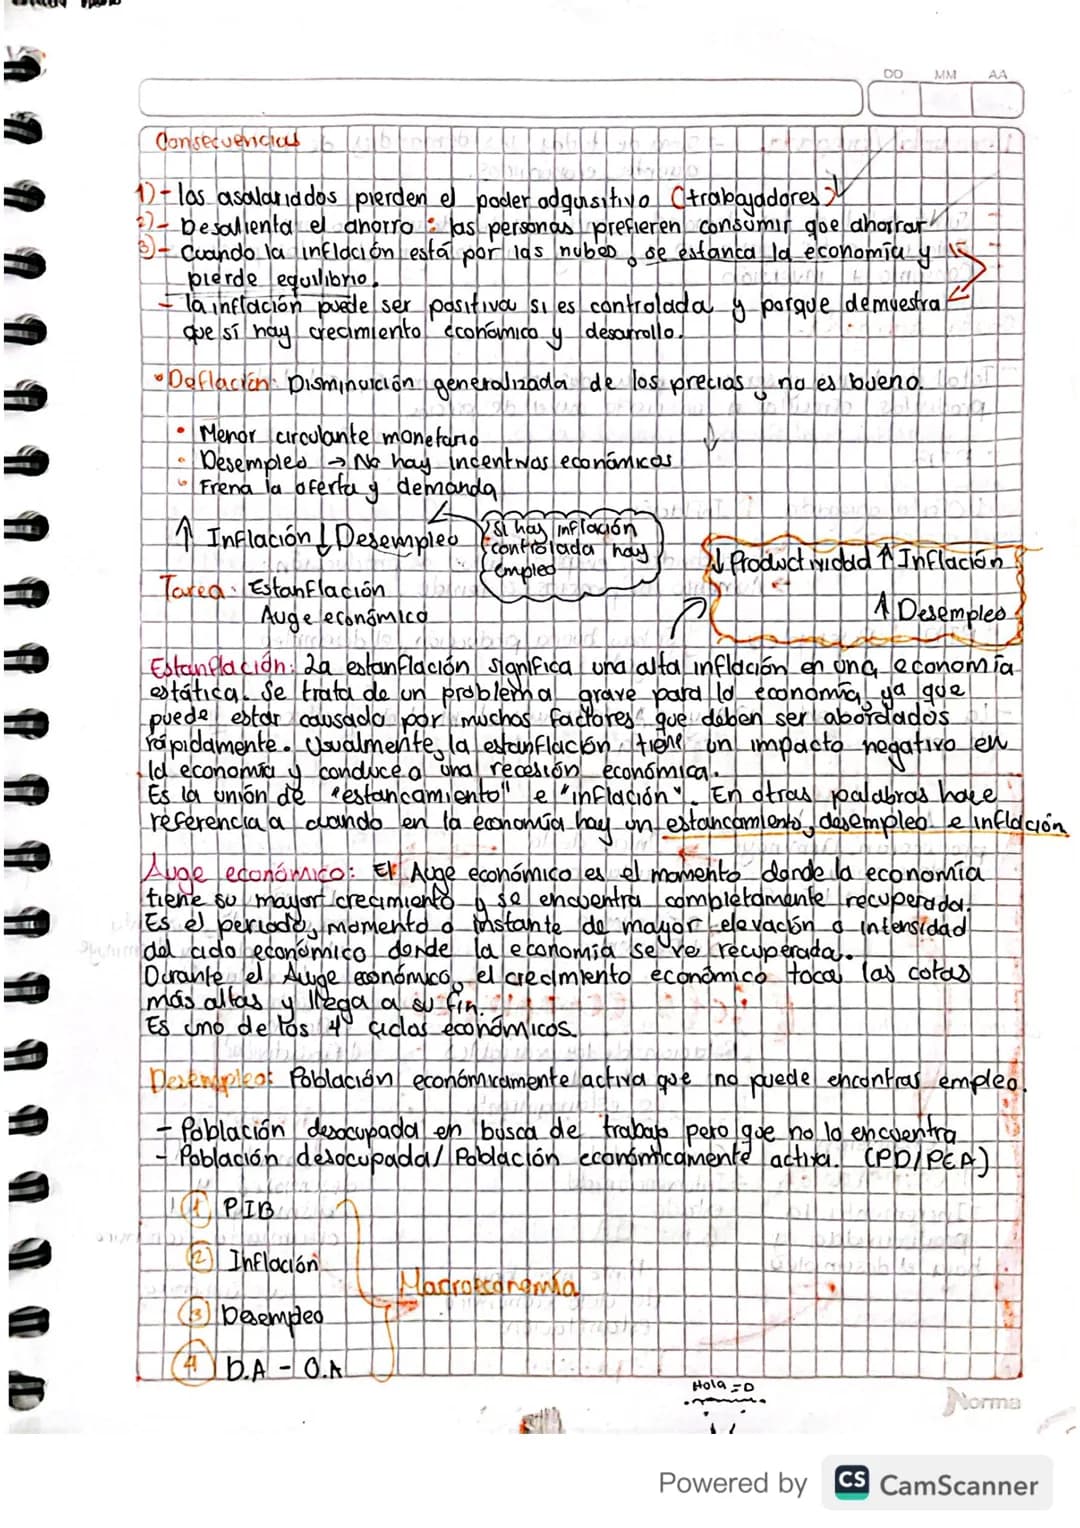 DD MM AA
Consecuencias
1)- los asalariddos pierden el poder adquisitivo (trabajadores)
2)- Desalienta el ahorro : las personas prefieren consumir que ahorrar
3)- Cuando la inflación está por las nubes, se estanca la economía y
pierde equilibrio.
- la inflación puede ser positiva si es controlada y porque demuestra
que sí hay crecimiento económico y desarrollo.
• Deflación: Disminución generalizada de los precios y no es bueno.
• Menor circulante monetario
• Desempleo → No hay incentivos económicos
• Frena la oferta y demanda
↑ Inflación ↓ Desempleo
Si hay inflación
controlada hay
empleo
↓ Productividad ↑ Inflación
↑ Desempleo
Tarea: Estanflación
Auge económico
Estanflación: La estanflación significa una alta inflación en una economía
estática. Se trata de un problema grave para la economía, ya que
puede estar causado por muchos factores que deben ser abordados
rápidamente. Usualmente, la estanflación tiene un impacto negativo en
la economía y conduce a una recesión económica.
Es la unión de "estancamiento" e "inflación". En otras palabras hace
referencia a cuando en la economía hay un estancamiento, desempleo e inflación
Auge económico: El Auge económico es el momento donde la economía
tiene su mayor crecimiento y se encuentra completamente recuperada.
Es el periodo, momento o instante de mayor elevación o intensidad
del ciclo económico donde la economía se ve recuperada.
Durante el Auge económico, el crecimiento económico toca las cotas
más altas y llega a su fin.
Es uno de los 4 ciclos económicos.
Desempleo: Población económicamente activa que no puede encontras empleo.
- Población desocupada en busca de trabajo pero que no lo encuentra
- Población desocupada/ Población económicamente activa. (PD/PEA)
1 PIB
2 Inflación
3 Desempleo
4 D.A - O.A
Macroeconomía
Hola =D
Norma
Powered by CS CamScanner